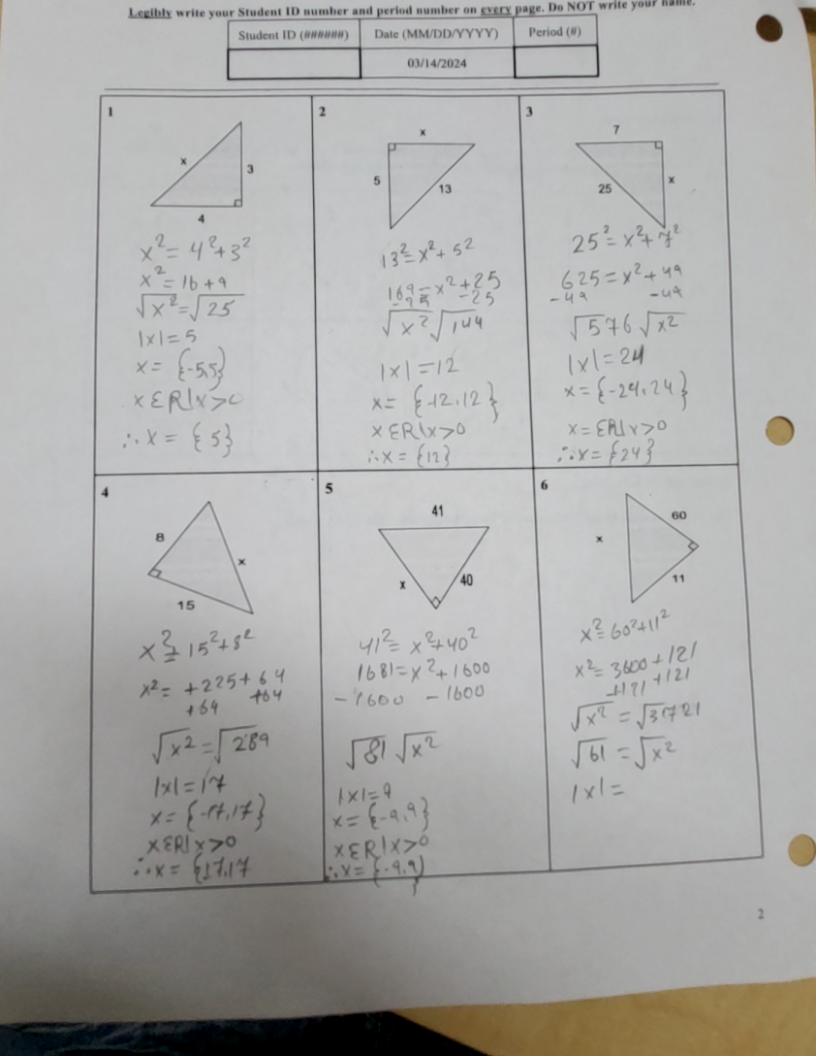 Legibly write your Student ID number and period number on every page. Do NOT write your name.
Student ID (######) Date (MM/DD/YYYY) Period (#)
03/14/2024
1
x
3
4
x² = 4²+3²
x² = 16+9
√x² = √25
|x| = 5
x = {-5,5}
x ∈ R | x > 0
∴ x = {5}
2
x
5
13
13² = x² + 5²
169 = x² + 25
-25 -25
√x² √144
|x| = 12
x = {-12,12}
x ∈ R | x > 0
∴ x = {12}
3
7
25
x
25² = x² + 7²
625 = x² + 49
-49 -49
√576 √x²
|x| = 24
x = {-24,24}
x = ∈ R | x > 0
∴ x = {24}
4
8
x
15
x² = 15² + 8²
x² = +225 + 64
+64 +64
√x² = √289
|x| = 17
x = {-17,17}
x ∈ R | x > 0
∴ x = {17,17
5
41
x
40
41² = x² + 40²
1681 = x² + 1600
-1600 -1600
√81 √x²
|x| = 9
x = {-9,9}
x ∈ R | x > 0
∴ x = {-9,9}
6
60
x
11
x² = 60² + 11²
x² = 3600 + 121
+121 +121
√x² = √3721
√61 = √x²
|x| =
2